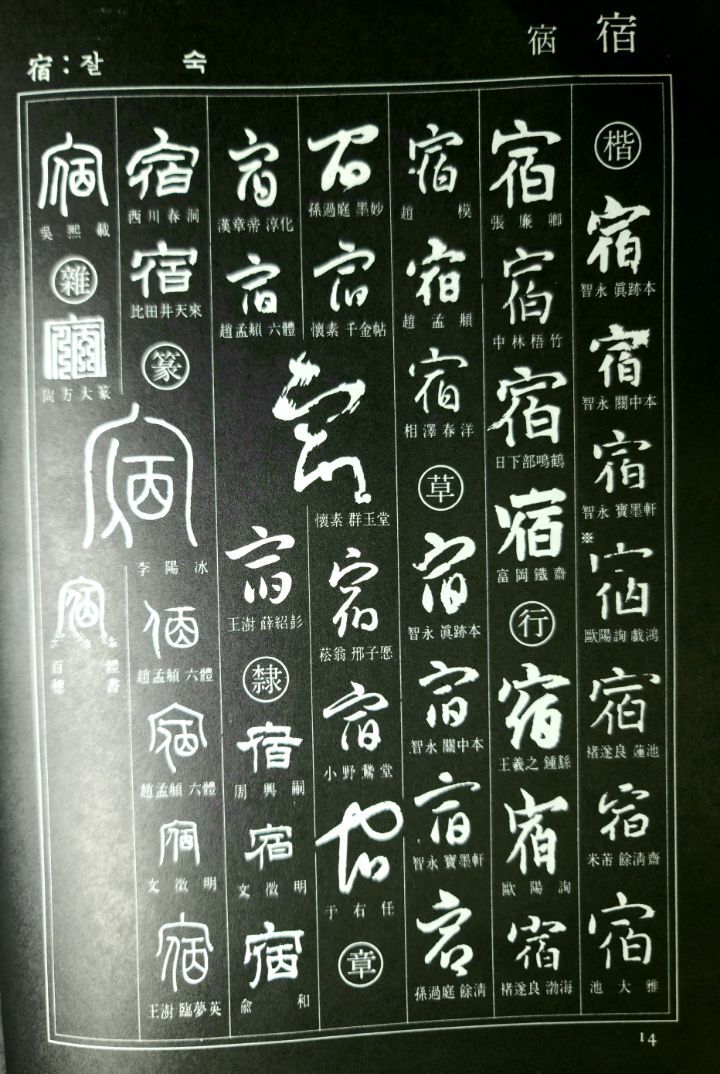 宿
宿：잘 숙
楷
宿
智永 眞跡本
宿
智永 關中本
宿
智永 寶墨軒
※
宿
歐陽詢 戲鴻
宿
褚遂良 蓮池
宿
米芾 餘淸齋
宿
池大雅
宿
張廉卿
宿
中林梧竹
宿
日下部鳴鶴
宿
富岡鐵齋
行
宿
王羲之 鍾繇
宿
歐陽詢
宿
褚遂良 渤海
宿
趙模
宿
趙孟頫
宿
相澤春洋
草
宿
智永 眞跡本
宿
智永 關中本
宿
智永 寶墨軒
宿
孫過庭 餘淸
宿
孫過庭 墨妙
宿
懷素 千金帖
宿
懷素 群玉堂
宿
崧翁 邢子愿
宿
小野鵞堂
宿
于右任
章
宿
漢章帝 淳化
宿
趙孟頫 六體
宿
王澍 薛紹彭
隸
宿
周興嗣
宿
文徵明
宿
兪和
宿
西川春洞
宿
比田井天來
篆
宿
李陽冰
宿
趙孟頫 六體
宿
趙孟頫 六體
宿
文徵明
宿
王澍 臨夢英
宿
吳熙載
雜
宿
尙方大篆
宿
14